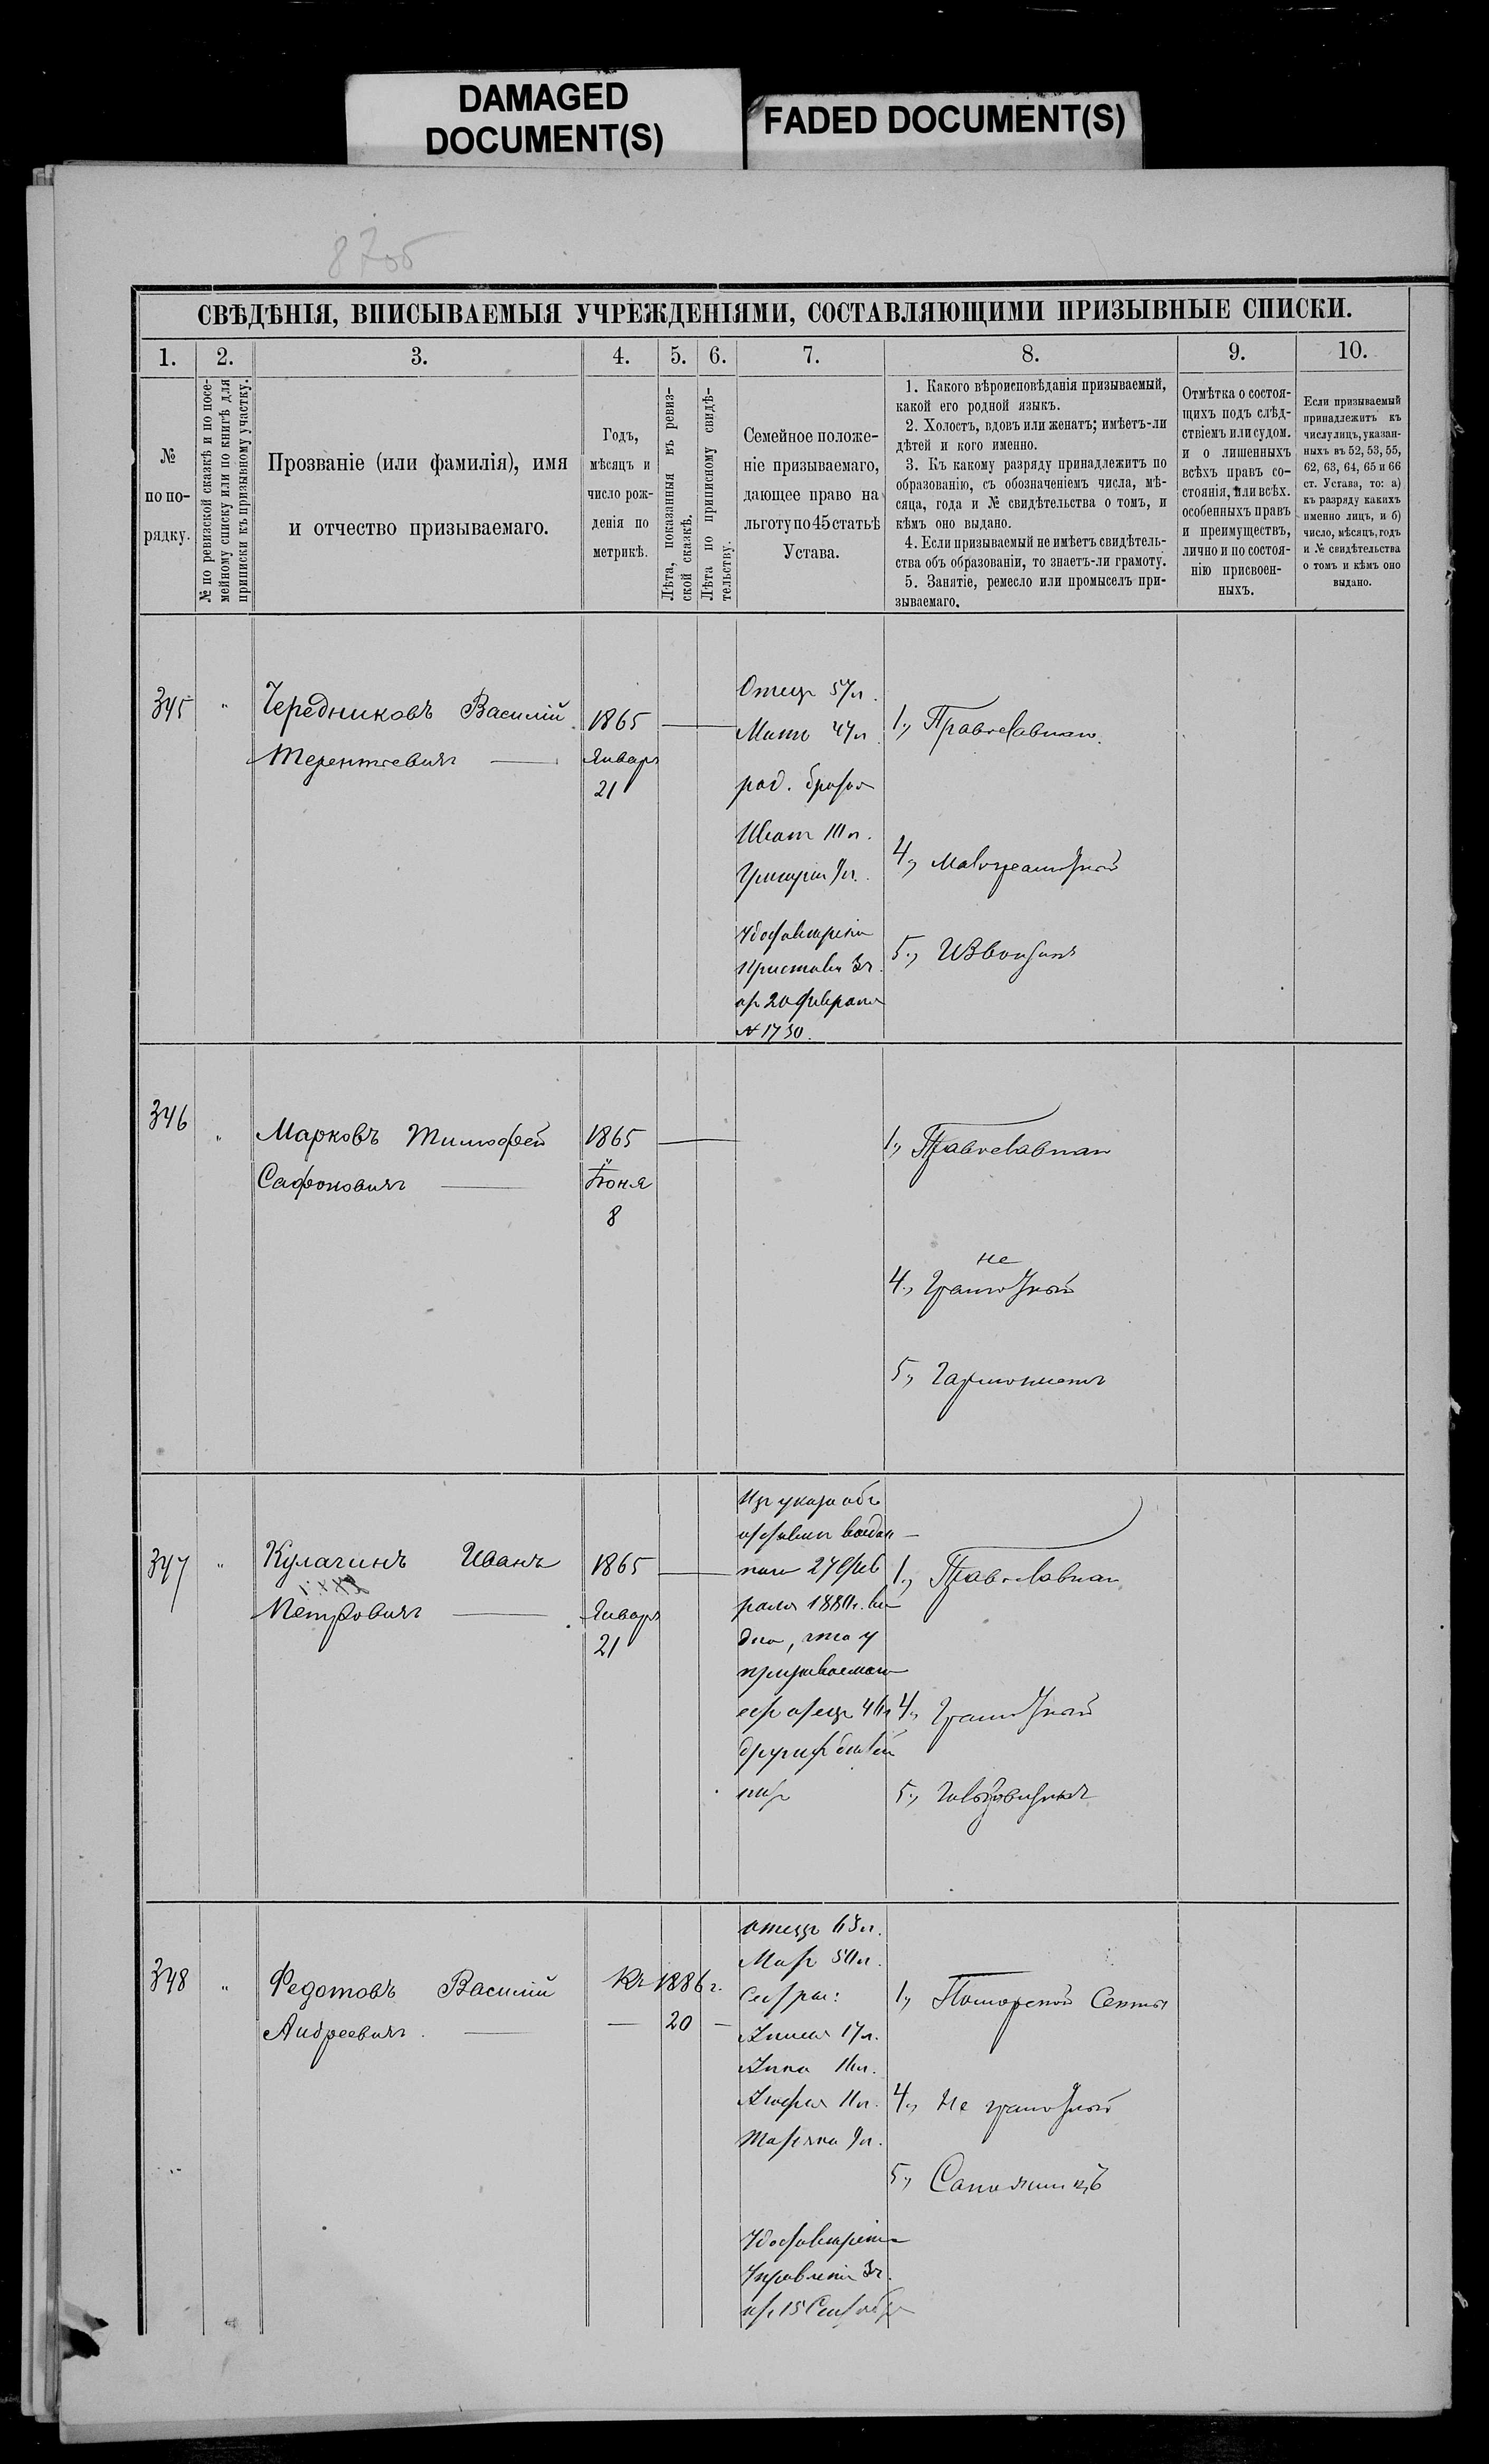 DAMAGED
DOCUMENT(S)
FADED DOCUMENT(S)
СВѢДѢНІЯ, ВПИСЫВАЕМЫЯ УЧРЕЖДЕНІЯМИ, СОСТАВЛЯЮЩИМИ ПРИЗЫВНЫЕ СПИСКИ.
1. 2. 3. 4. 5. 6. 7. 8. 9. 10.
№
по по-
рядку.
№ по ревизской сказкѣ и по посе-
мейному списку или по книгѣ для
приписки къ призывному участку.
Прозваніе (или фамилія), имя
и отчество призываемаго.
Годъ,
мѣсяцъ и
число рож-
денія по
метрикѣ.
Лѣта, показанныя въ ревиз-
ской сказкѣ.
Лѣта по приписному свидѣ-
тельству.
Семейное положе-
ніе призываемаго,
дающее право на
льготу по 45 статьѣ
Устава.
1. Какого вѣроисповѣданія призываемый,
какой его родной языкъ.
2. Холостъ, вдовъ или женатъ; имѣетъ-ли
дѣтей и кого именно.
3. Къ какому разряду принадлежитъ по
образованію, съ обозначеніемъ числа, мѣ-
сяца, года и № свидѣтельства о томъ, и
кѣмъ оно выдано.
4. Если призываемый не имѣетъ свидѣтель-
ства объ образованіи, то знаетъ-ли грамоту.
5. Занятіе, ремесло или промыселъ при-
зываемаго.
Отмѣтка о состоя-
щихъ подъ слѣд-
ствіемъ или судомъ.
и о лишенныхъ
всѣхъ правъ со-
стоянія, или всѣх.
особенныхъ правъ
и преимуществъ,
лично и по состоя-
нію присвоен-
ныхъ.
Если призываемый
принадлежитъ къ
числу лицъ, указан-
ныхъ въ 52, 53, 55,
62, 63, 64, 65 и 66
ст. Устава, то: а)
къ разряду какихъ
именно лицъ, и б)
число, мѣсяцъ, годъ
и № свидѣтельства
о томъ и кѣмъ оно
выдано.
345 " Чередниковъ Василій
Терентьевичъ
1865
Января
21
Отецъ 57 л.
Мать 47 л.
род. братья
Иванъ
Григорій 9 л.
Удостовѣреніе
Пристава 3 ч.
от 20 февраля
№ 1730.
1., Православнаго.
4., Малограмотный
5., Извощикъ
346 " Марковъ Тимофей
Сафоновичъ
1865
Іюня
8
1., Православнаго
не
4., Грамотный
5., Гармонистъ
347 " Кулагинъ Иванъ
Петровичъ
1865
Января
21
Изъ указа объ
отставкѣ выдан
наго 27 Фев
раля
дно, что у
призываемаго
есть отецъ
другихъ дѣтей
нѣтъ
1., Православнаго
4., Грамотный
5.,
348 " Федотовъ Василій
Андреевичъ
Къ 1886 г.
20
отецъ 63 л.
Мать
Сестры:
17 л.
Анна
9 л.
Удостовѣреніе
Управленія 3 ч.
от 15 Сентября
1., Поморской Секты
4., Не грамотный
5., Сапожникъ